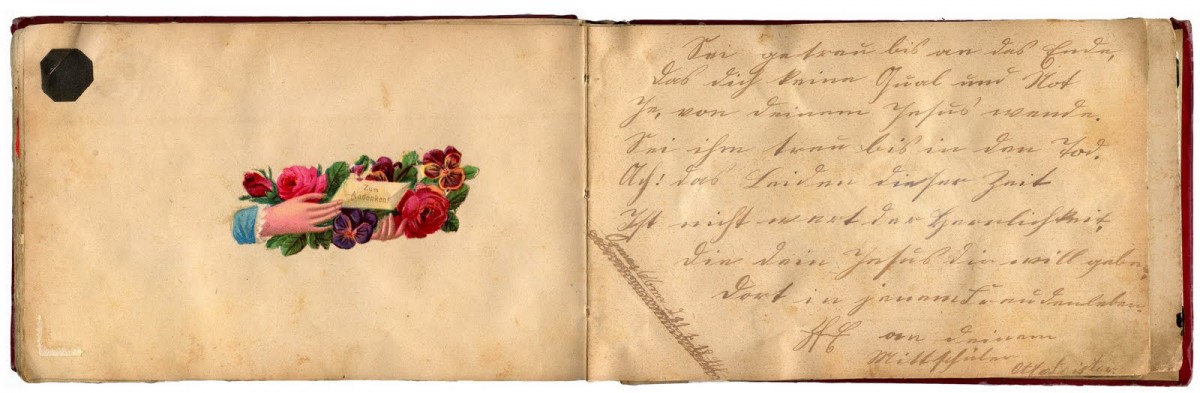 Zum
Andenken!
Sei getreu bis an das Ende,
das dich keine Qual und Not
Je, von deinem Jesus wende.
Sei ihm treu bis in den Tod.
Ach! das Leiden dieser Zeit
Ist nicht wert der Herrlichkeit,
die dein Jesus dir will geben,
dort in jenem Freudenleben.
an deinem
Mittschüler